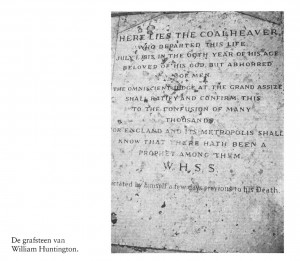 HERE LIES THE COALHEAVER,
WHO DEPARTED THIS LIFE
JULY 1. 1813, IN THE 69TH YEAR OF HIS AGE
BELOVED OF HIS GOD, BUT ABHORRED
OF MEN.
THE OMNISCIENT JUDGE AT THE GRAND ASSIZE
SHALL RATIFY AND CONFIRM THIS
TO THE CONFUSION OF MANY
THOUSANDS
FOR ENGLAND AND ITS METROPOLIS SHALL
KNOW THAT THERE HATH BEEN A
PROPHET AMONG THEM.
W. H. S. S.
by himself a few days previous to his Death.
De grafsteen van
William Huntington.